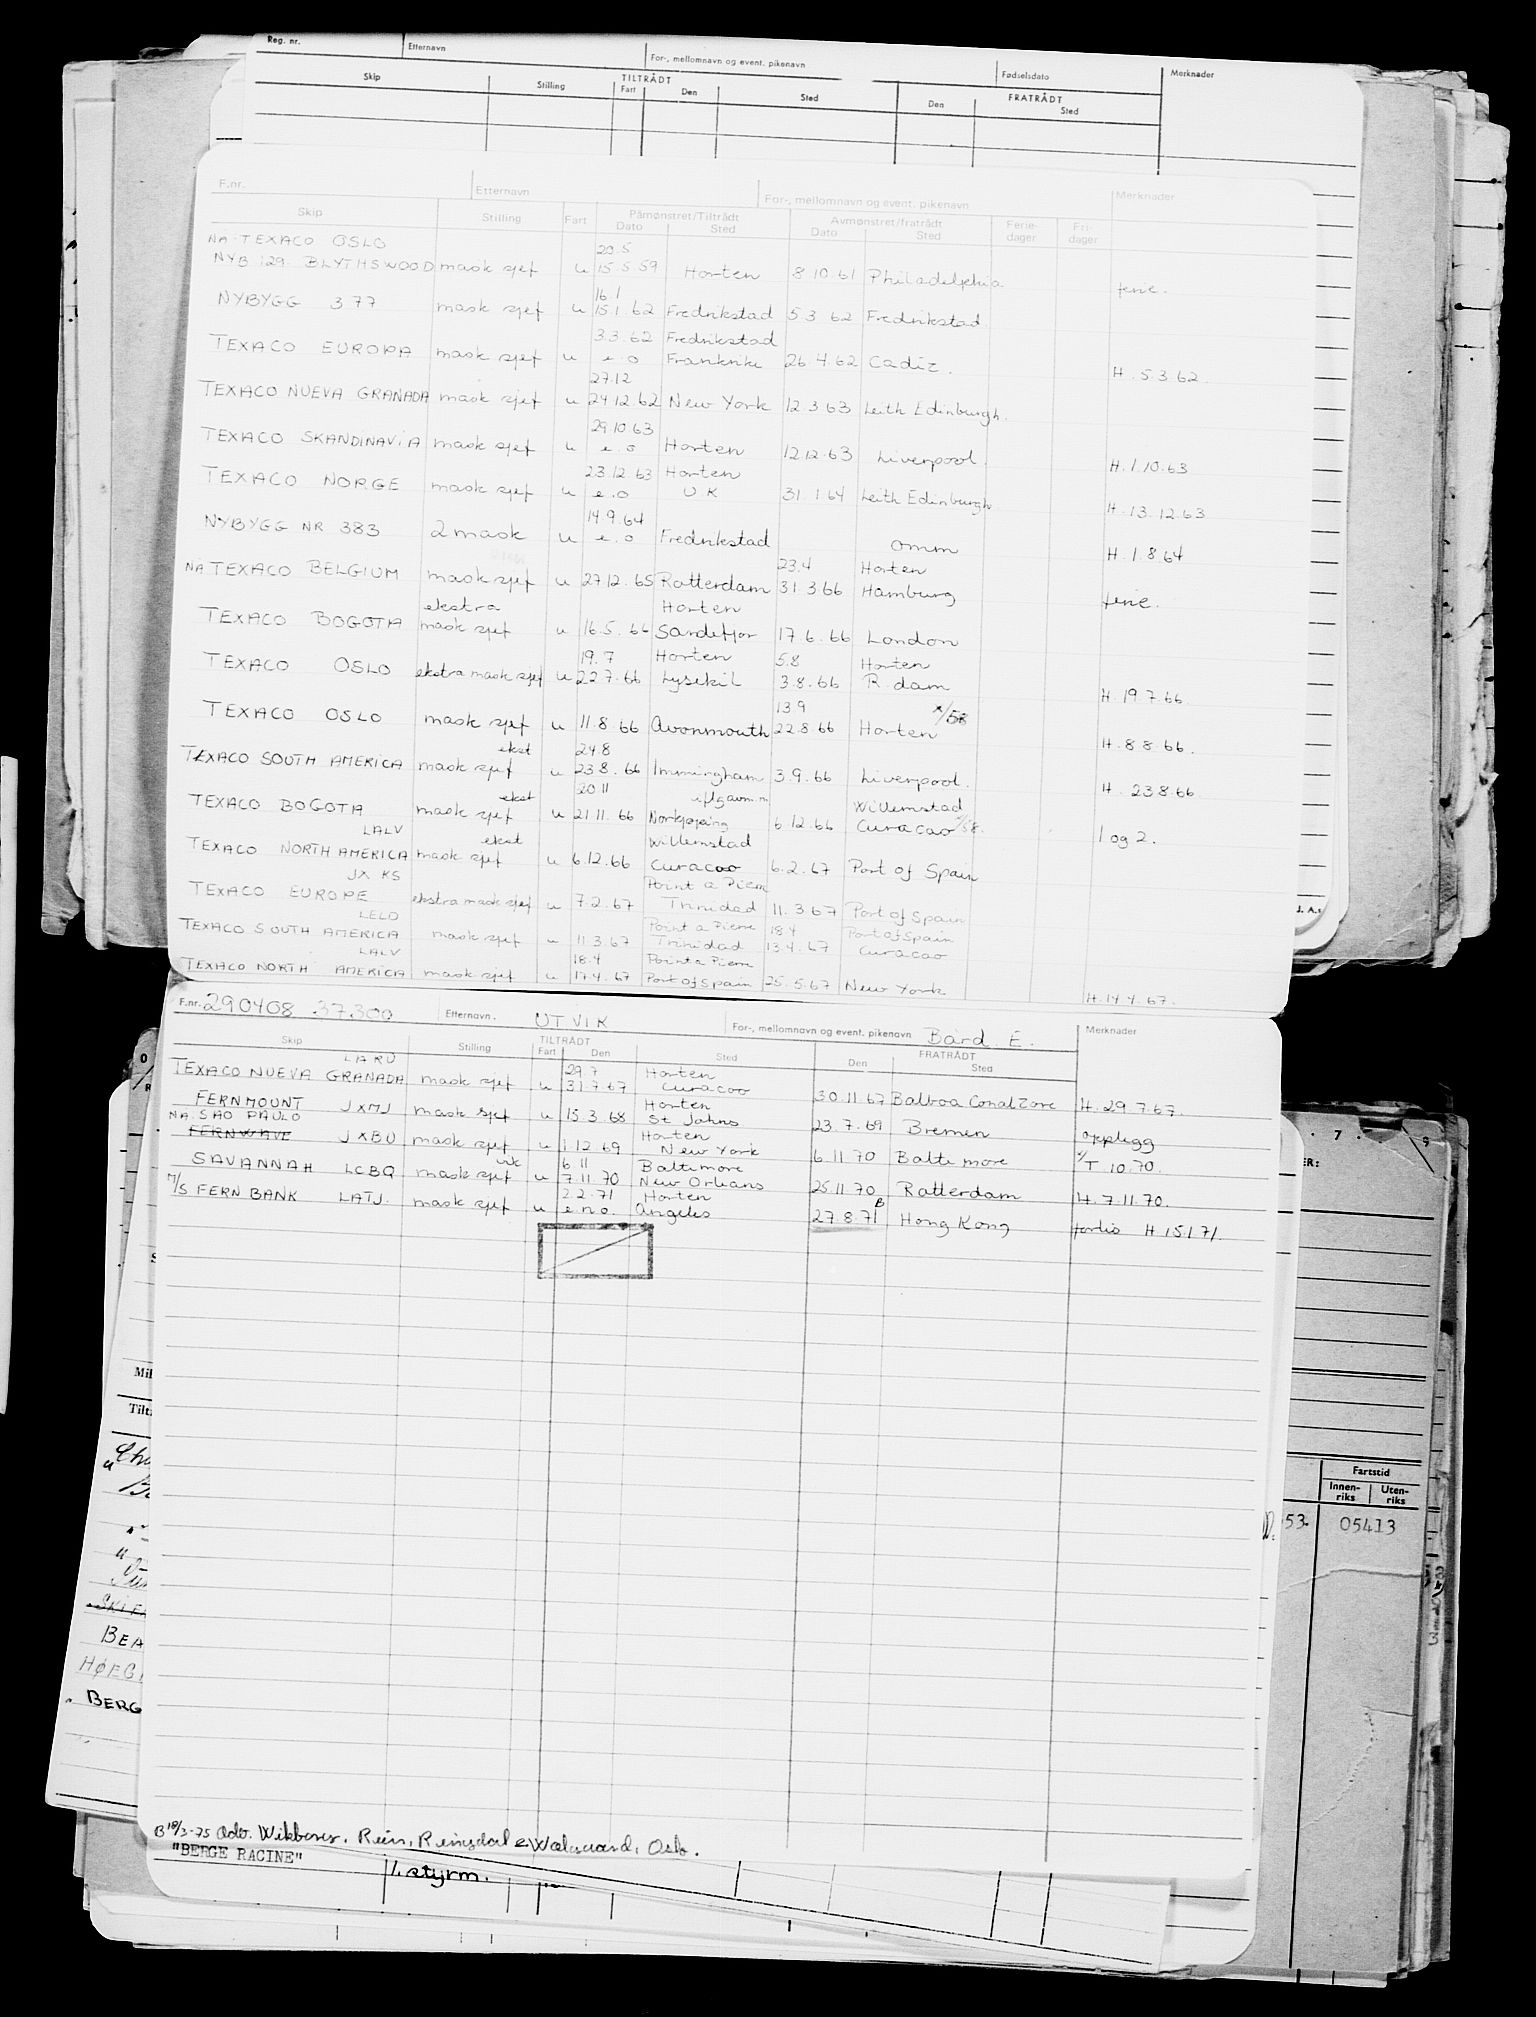 Reg. nr. Etternavn For-, mellomnavn og event. pikenavn Fødselsdato Merknader
Skip Stilling TILTRÅDT Fart Den Sted FRATRÅDT Den Sted
F.nr. Etternavn For-, mellomnavn og event. pikenavn Merknader
Skip Stilling Fart Påmønstret/Tiltrådt Dato Sted Avmønstret/fratrådt Dato Sted Ferie-dager Fri-dager
NA. TEXACO OSLO 20.5
NYB 129. BLYTHSWOOD mask sjef u 15.5.59 Horten 8.10.61 Philadelphia ferie.
16.1
NYBYGG 377 mask sjef u 15.1.62 Fredrikstad 5.3.62 Fredrikstad.
3.3.62 Fredrikstad
TEXACO EUROPA mask sjef u e.o Frankrike 26.4.62 Cadiz. H. 5.3.62.
27.12
TEXACO NUEVA GRANADA mask sjef u 24.12.62 New York 12.3.63 Leith Edinburgh.
29.10.63
TEXACO SKANDINAVIA mask sjef u e.o Horten 12.12.63 Liverpool. H.1.10.63
23.12.63 Horten
TEXACO NORGE mask sjef u e.o UK 31.1.64 Leith Edinburgh H.13.12.63
14.9.64
NYBYGG NR 383 2 mask u e.o Fredrikstad omm H.1.8.64
23.4 Horten
NA. TEXACO BELGIUM mask sjef u 27.12.65 Rotterdam 31.3.66 Hamburg ferie.
ekstra Horten
TEXACO BOGOTA mask sjef u 16.5.66 Sandefjor 17.6.66 London
19.7 Horten 5.8 Horten
TEXACO OSLO ekstra mask sjef u 22.7.66 Lysekil 3.8.66 R.dam H.19.7.66.
13.9 x/58
TEXACO OSLO mask sjef u 11.8.66 Avonmouth 22.8.66 Horten H.8.8.66.
ekst 24.8
TEXACO SOUTH AMERICA mask sjef u 23.8.66 Immingham 3.9.66 Liverpool. H. 23.8.66.
ekst 20.11 iflg avm.m Willemstad
TEXACO BOGOTA mask sjef u 21.11.66 Norkjøping 6.12.66 Curacao x/58. 1 og 2.
LALV ekst Willemstad
TEXACO NORTH AMERICA mask sjef u 6.12.66 Curacao 6.2.67 Port of Spain
JX KS Point a Pierre
TEXACO EUROPE ekstra mask sjef u 7.2.67 Trinidad 11.3.67 Port of Spain
LELD Point a Pierre 18.4 Port of Spain
TEXACO SOUTH AMERICA mask sjef u 11.3.67 Trinidad 13.4.67 Curacao
LALV 18.4 Point a Pierre
TEXACO NORTH AMERICA mask sjef u 17.4.67 Port of Spain 25.5.67 New York H.14.4.67.
F.nr. 290408 37.300 Etternavn. UTVIK For-, mellomnavn og event. pikenavn Bård E. Merknader
Skip Stilling TILTRÅDT Fart Den Sted FRATRÅDT Den Sted
LARU 29.7 Horten
TEXACO NUEVA GRANADA mask sjef u 31.7.67 Curacao 30.11.67 Balboa Canal Zone H.29.7.67.
Horten
FERNMOUNT JXMJ mask sjef u 15.3.68 St Johns 23.7.69 Bremen opplegg
NA. SAO PAULO Horten
FERNWAVE JXBU mask sjef u 1.12.69 New York 6.11.70 Baltimore T 10.70.
vik 6.11 Baltimore
SAVANNAH LCBQ mask sjef u 7.11.70 New Orleans 25.11.70 Rotterdam H.7.11.70.
2.2.71 Horten B
M/S FERN BANK LATJ. mask sjef u e.n.o. Angeles 27.8.71 Hong Kong fordis H 15.1.71.
B 18/3-75 Adv. Wikborg, Rein, Ringdal & Wålgaard, Oslo.
"BERGE RACINE" 1. styrm.
J. A.
7 . . 9
ER:
Mil
Tilt
SKIE
BEA
HØEG
BERG
Fartstid
Innen-riks Uten-riks
53. 05413